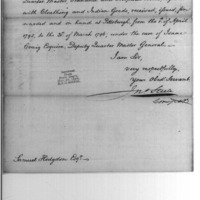 Quarter Master, Hardware and
with Cloathing and Indian Goods, received, issued, for
warded and on hand at Pittsburgh from the 1st of April
1795, to the 31st of March 1796, under the care of Isaac
Craig Esquire, Deputy Quarter Master General.—
I am Sir,
very respectfully,
Your Obed Servant
Samuel Hodgdon Esqr.